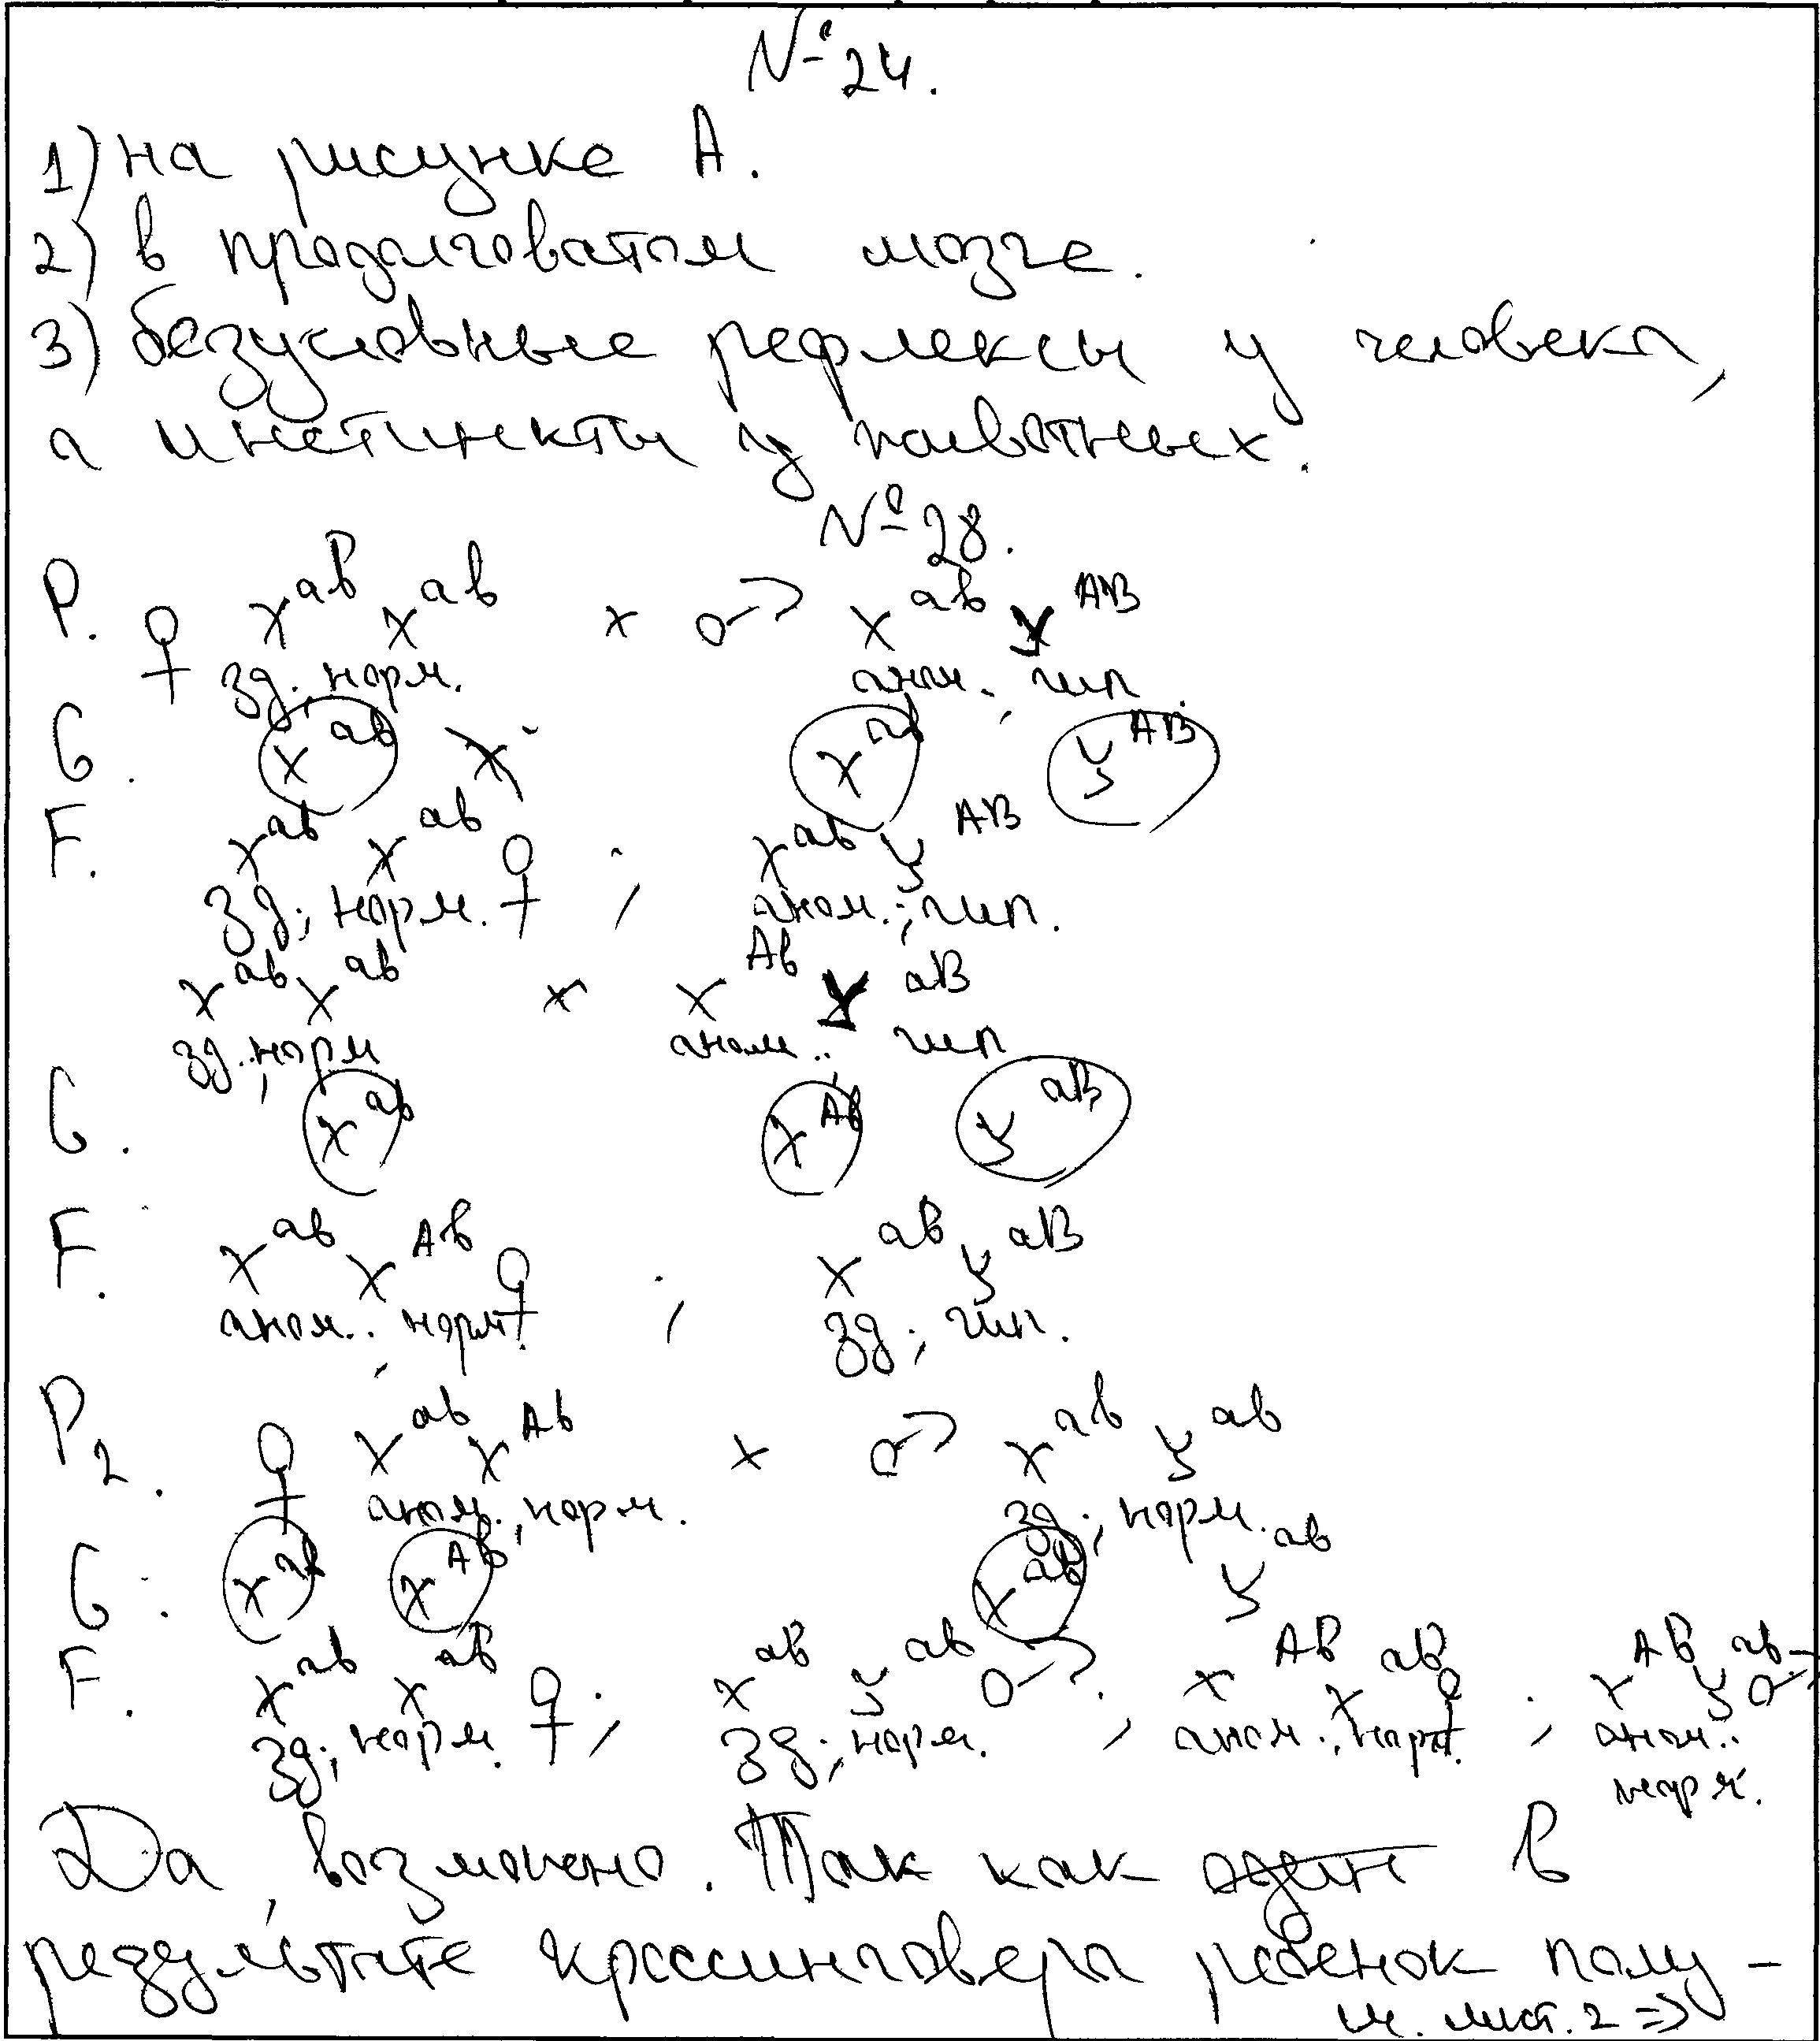 № 24.
1) на рисунке А.
2) в продолговатом мозге.
3) безусловные рефлексы у человека,
а инстинкты у животных.
№ 28.
P. ♀ X^ab X^ab × ♂ X^ab Y^AB
зд.; норм. аном.; гип.
G. X^ab X^ab Y^AB
F. X^ab X^ab ♀ ; X^ab Y^AB
зд; норм. аном.; гип.
X^ab X^ab × X^Ab Y^aB
зд.; норм аном.; гип
G. X^ab X^Ab Y^aB
F. X^ab X^Ab ♀ ; X^ab Y^aB
аном.; норм. зд; гип.
P2. ♀ X^ab X^Ab × ♂ X^ab Y^ab
аном.; норм. зд.; норм.
G. X^ab X^Ab X^ab Y^ab
F. X^ab X^ab ♀ ; X^ab Y^ab ♂ ; X^Ab X^ab ♀ ; X^Ab Y^ab ♂
зд; норм. зд; норм. аном.; норм. аном.;
норм.
Да, возможно. Так как один в
результате кроссинговера ребенок полу-
см. лист. 2 =>